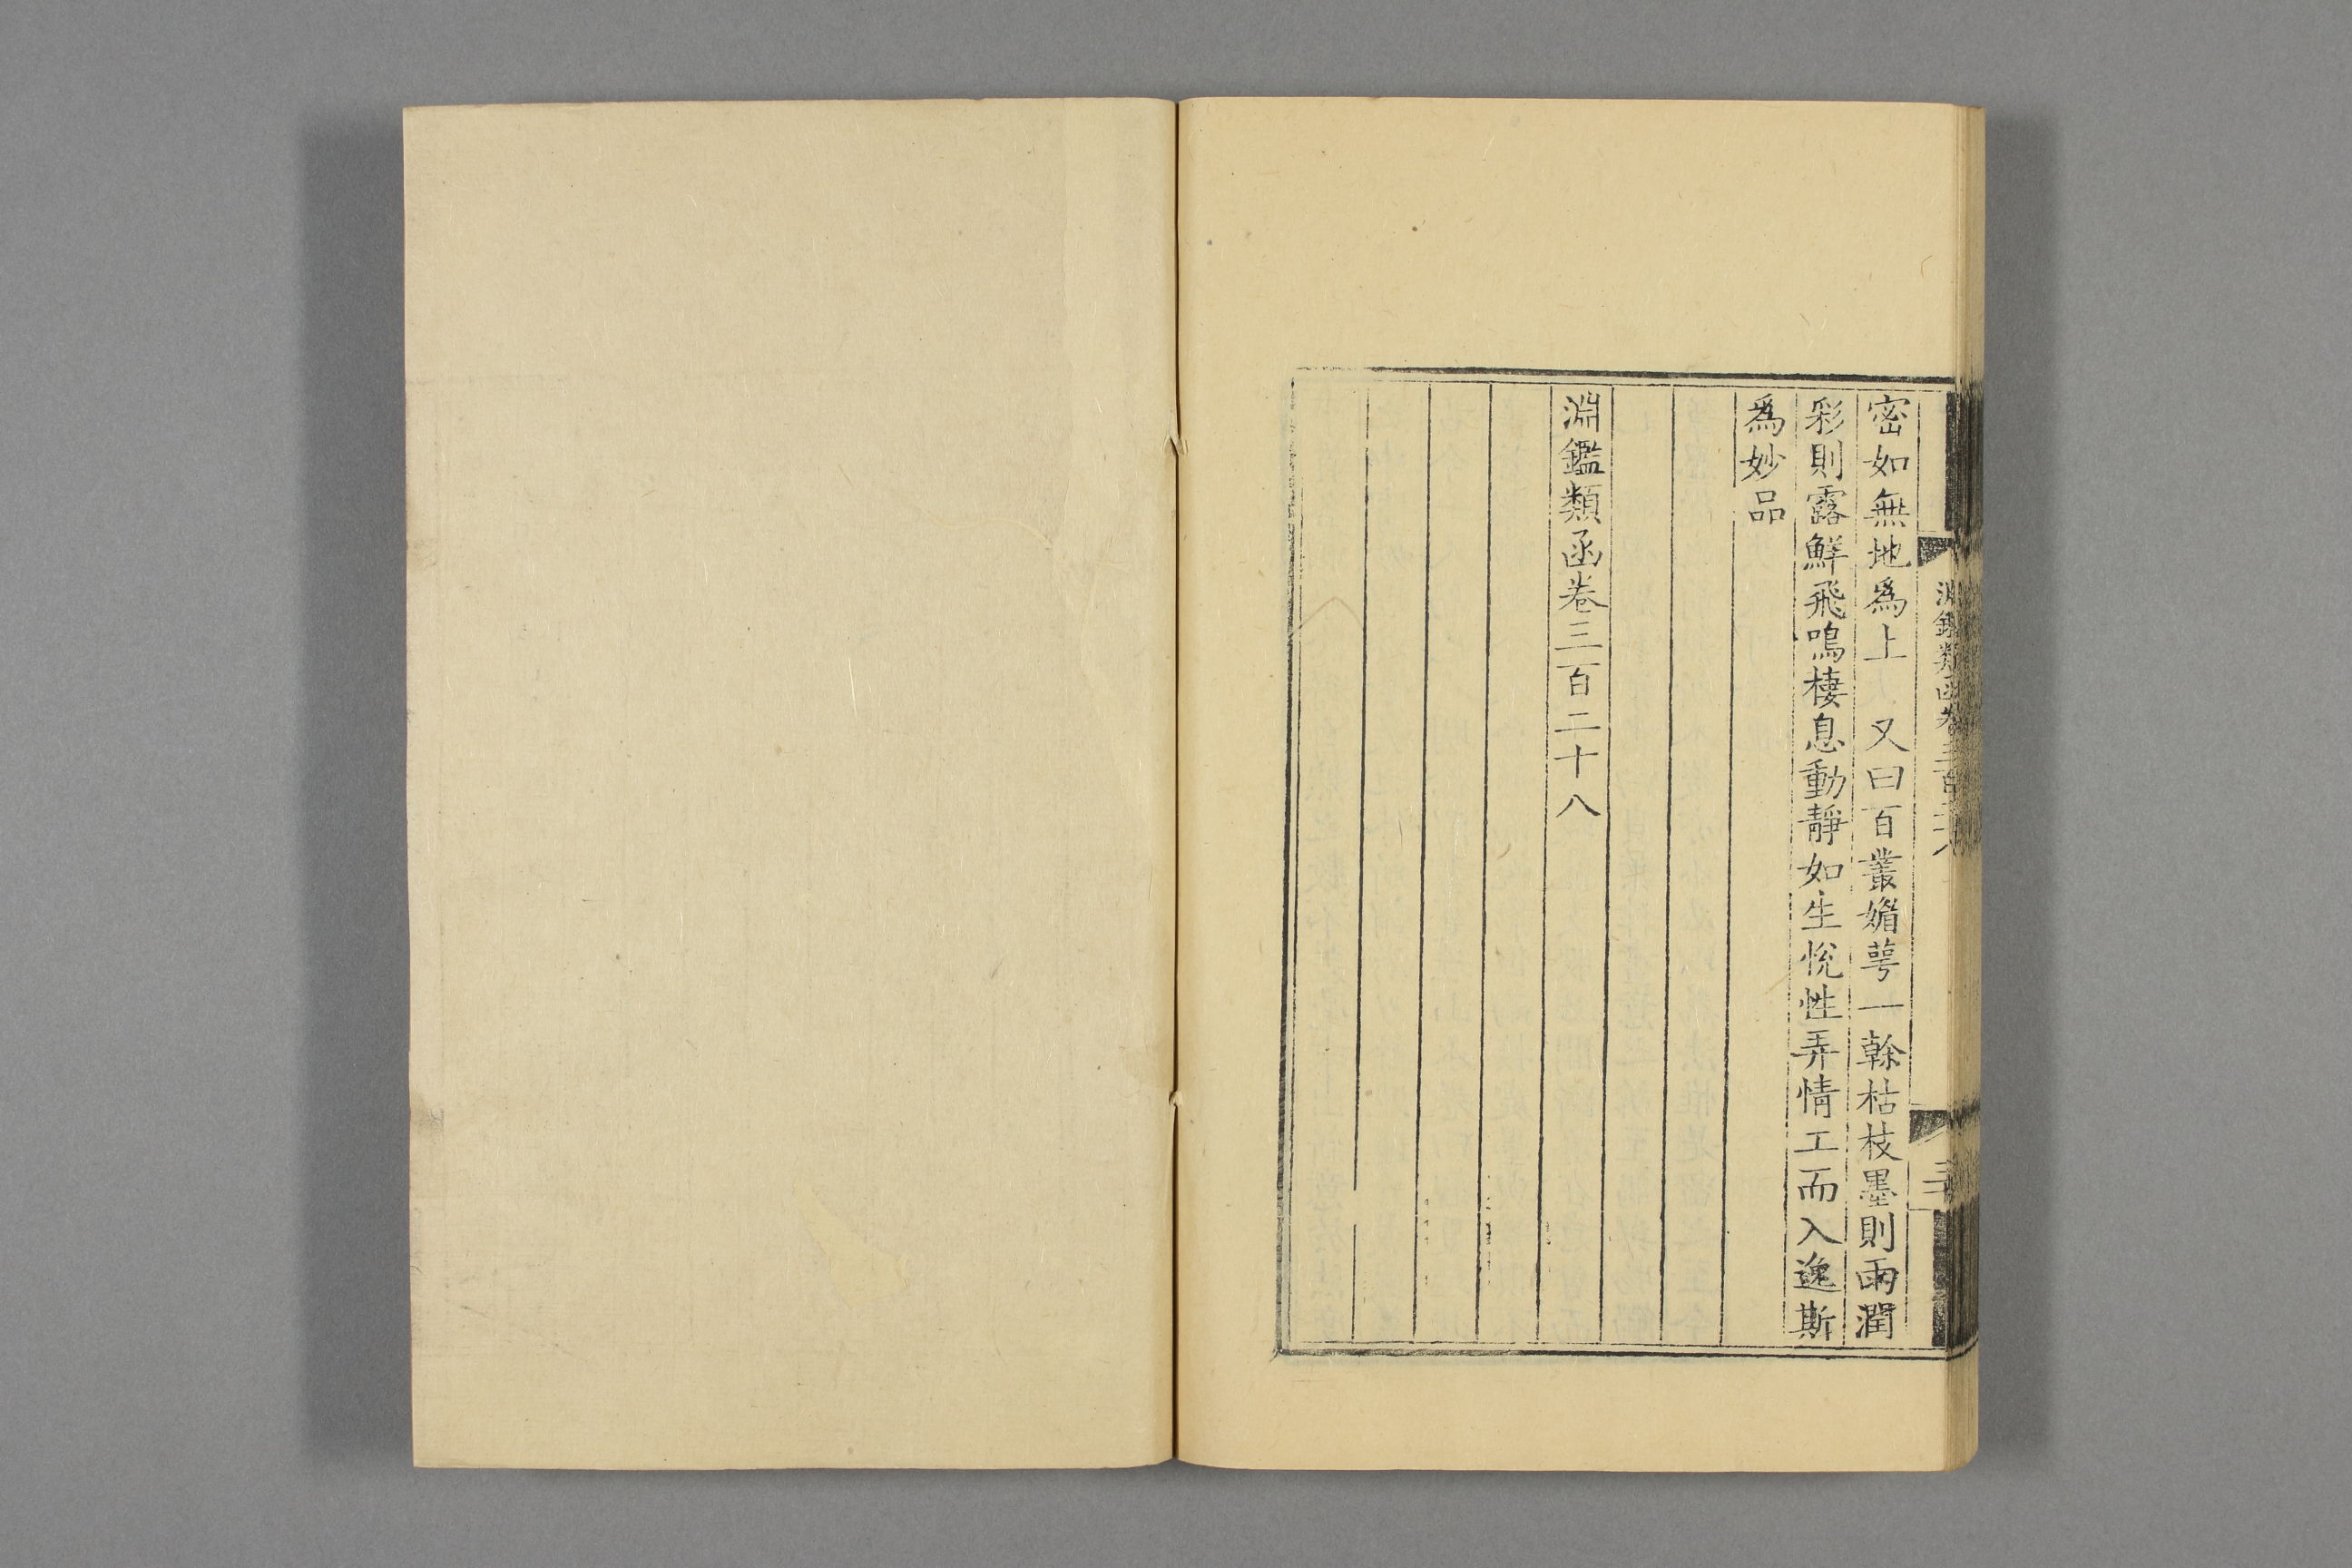 密如無地爲上　又曰百叢媚萼一榦枯枝墨則雨潤
彩則露鮮飛鳴棲息動靜如生悅性弄情工而入逸斯
爲妙品
淵鑑類函卷三百二十八
淵鑑類函卷三百二十八